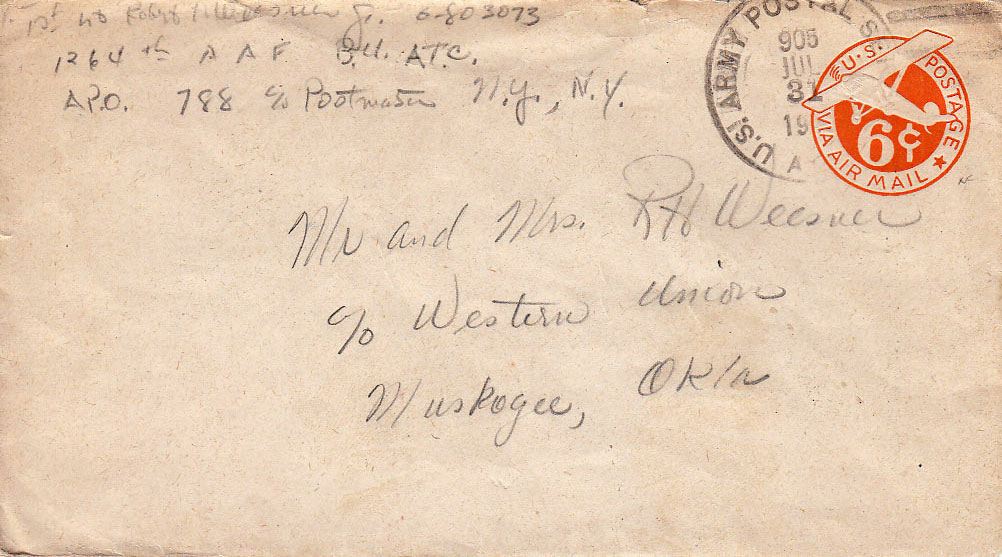 1st Lt Robert H Weesner Jr. O-803073
1264th A A F B.U. ATC.
A.P.O. 788 c/o Postmaster N.Y., N.Y.
U.S. ARMY POSTAL S.
905
JUL
31
19
A
U.S. POSTAGE
VIA AIR MAIL
6¢
Mr and Mrs. R H Weesner
c/o Western Union
Muskogee, Okla